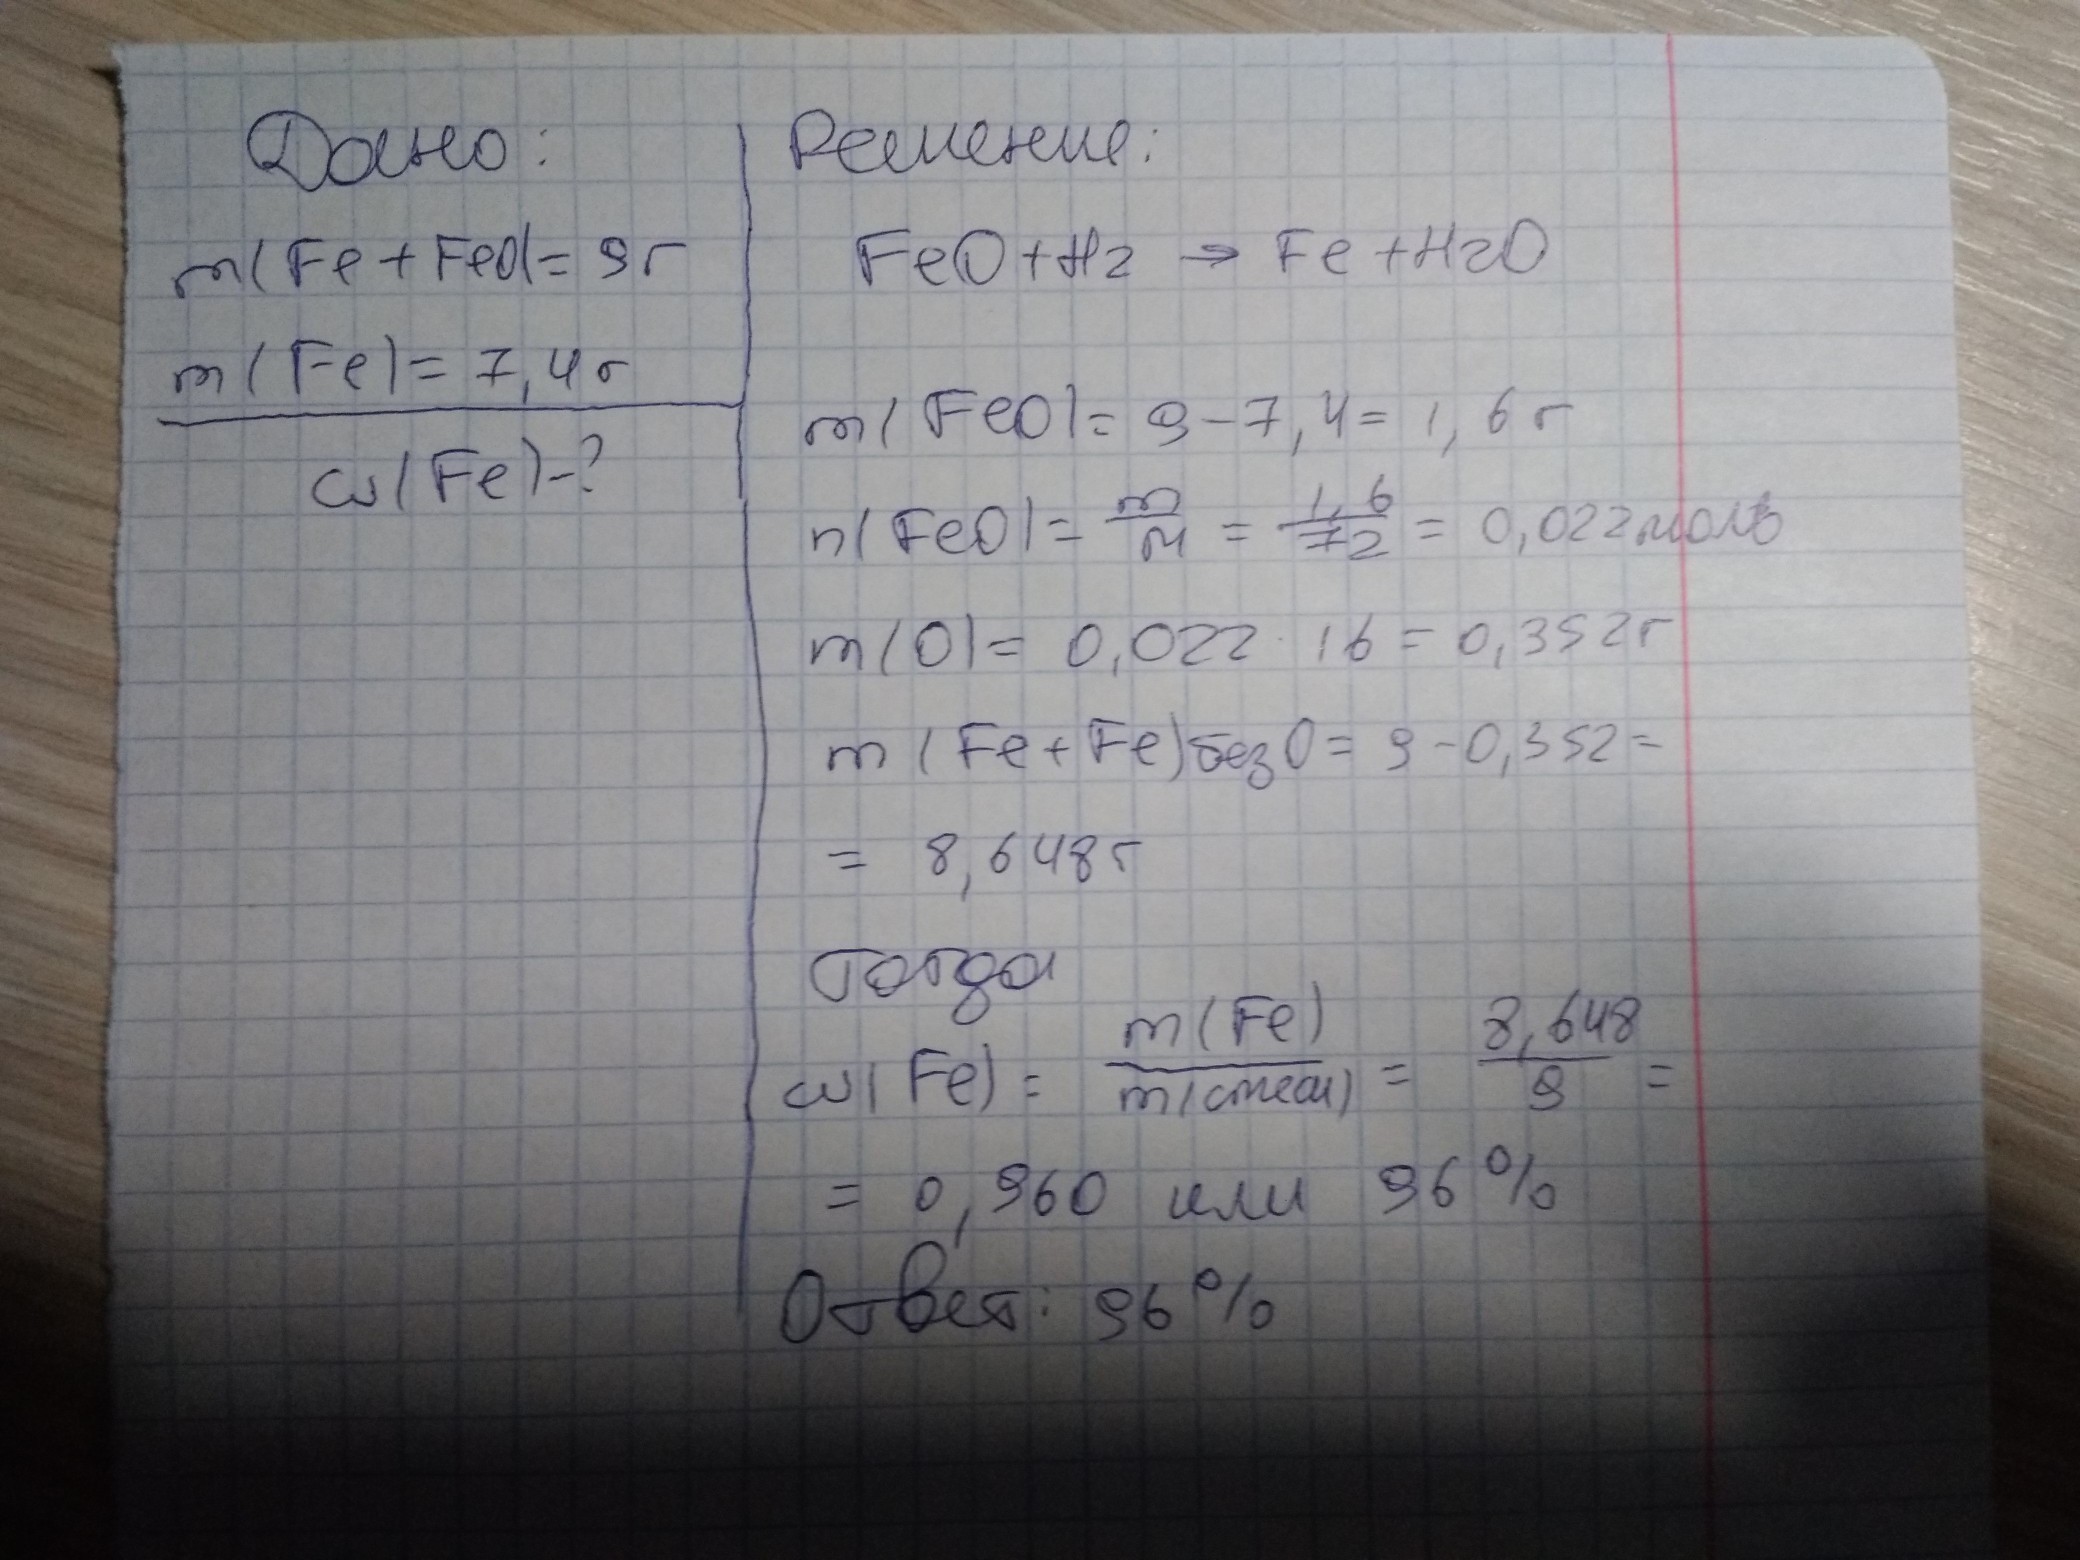 Дано:
m(Fe+FeO)=9г
m(Fe)=7,4г
ω(Fe)-?
Решение:
FeO+H2 → Fe+H2O
m(FeO)=9-7,4=1,6г
n(FeO)=m/M=1,6/72=0,022моль
m(O)=0,022·16=0,352г
m(Fe+Fe)безO=9-0,352=
=8,648г
тогда
ω(Fe)=m(Fe)/m(смеси)=8,648/9=
=0,960 или 96%
Ответ: 96%